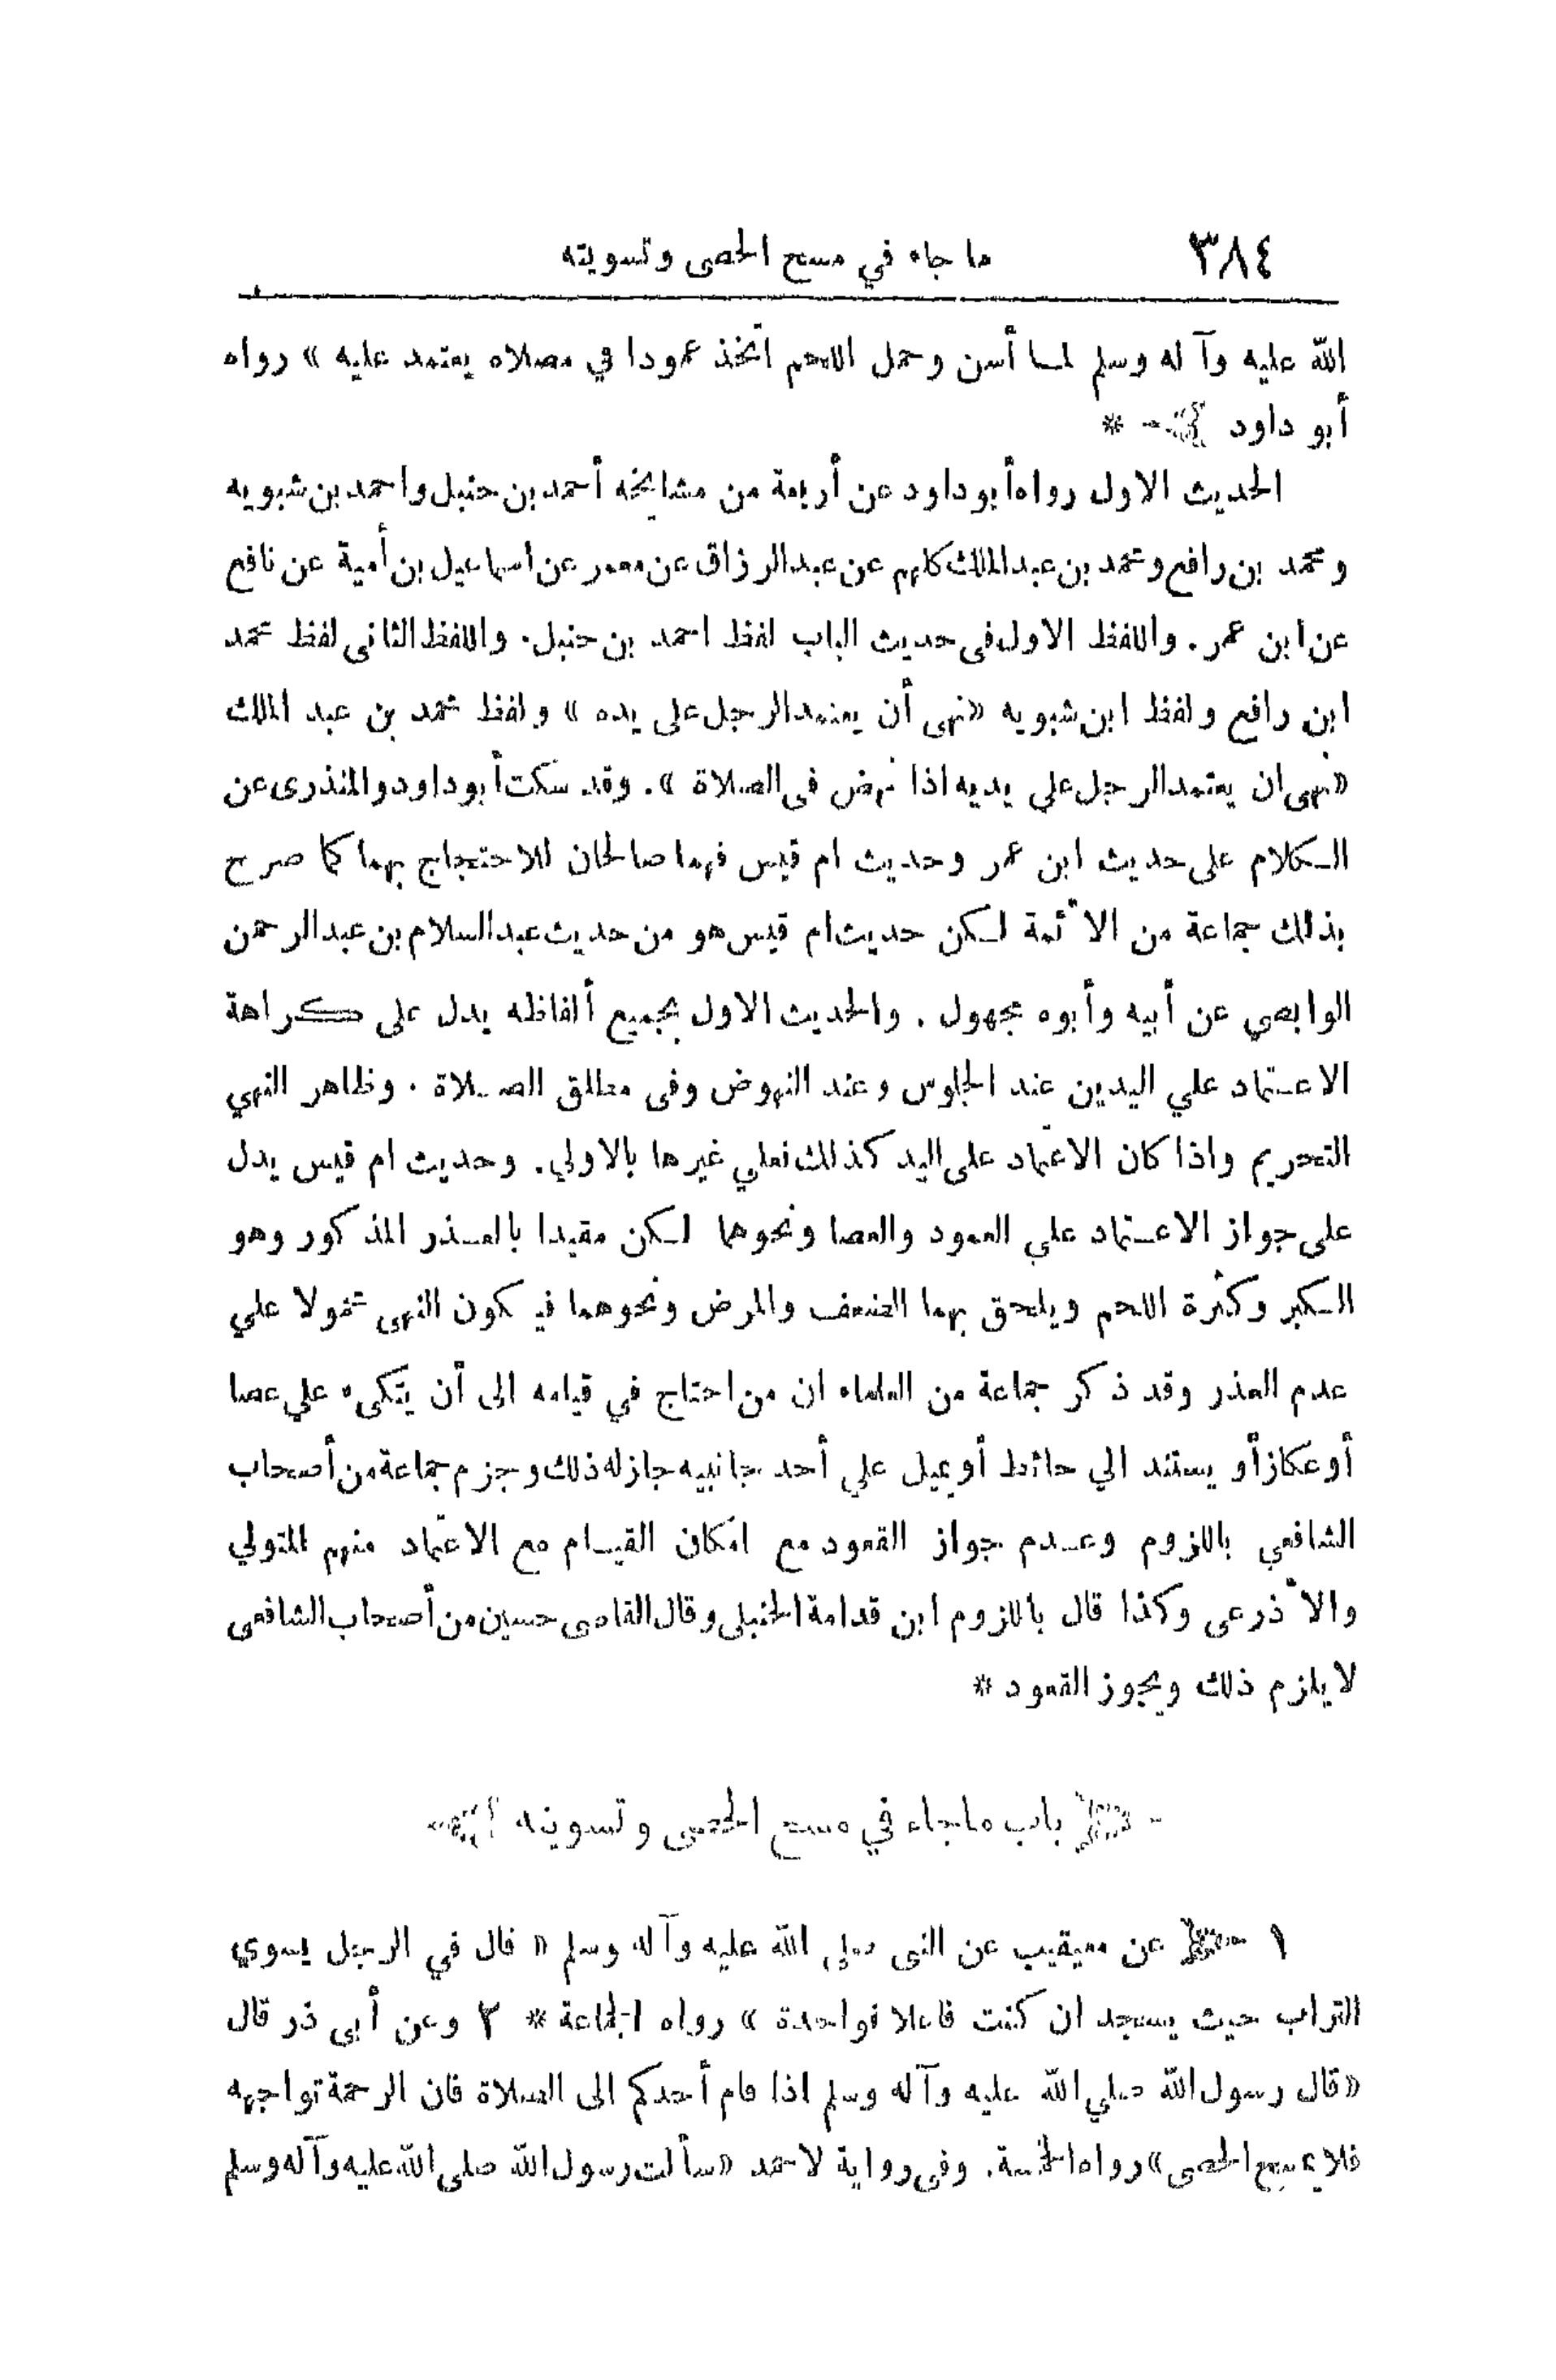 ٣٨٤ ما جاء في مسح الحصى وتسويته
الله عليه وآله وسلم لما أسن وحمل اللحم اتخذ عمودا في مصلاه يعتمد عليه » رواه
أبو داود *
الحديث الاول رواه أبو داود عن أربعة من مشايخه أحمد بن حنبل واحمد بن شبويه
ومحمد بن رافع ومحمد بن عبد الملك كلهم عن عبد الرزاق عن معمر عن اسماعيل بن أمية عن نافع
عن ابن عمر . واللفظ الاول فى حديث الباب لفظ احمد بن حنبل . واللفظ الثانى لفظ محمد
ابن رافع ولفظ ابن شبويه «نهى أن يعتمد الرجل على يده » ولفظ محمد بن عبد الملك
«نهى ان يعتمد الرجل علي يديه اذا نهض فى الصلاة ». وقد سكت أبو داود والمنذرى عن
الكلام على حديث ابن عمر وحديث ام قيس فهما صالحان للاحتجاج بهما كما صرح
بذلك جماعة من الأئمة لكن حديث ام قيس هو من حديث عبد السلام بن عبد الرحمن
الوابصي عن أبيه وأبوه مجهول . والحديث الاول بجميع ألفاظه يدل على كراهة
الاعتماد علي اليدين عند الجلوس وعند النهوض وفى مطلق الصلاة . وظاهر النهي
التحريم واذا كان الاعتماد على اليد كذلك فعلي غيرها بالاولي. وحديث ام قيس يدل
على جواز الاعتماد علي العمود والعصا ونحوهما لكن مقيدا بالعذر المذكور وهو
الكبر وكثرة اللحم ويلحق بهما الضعف والمرض ونحوهما فيكون النهى محمولا علي
عدم العذر وقد ذكر جماعة من العلماء ان من احتاج في قيامه الى أن يتكىء علي عصا
أو عكاز أو يستند الي حائط أو يميل علي أحد جانبيه جاز له ذلك وجزم جماعة من أصحاب
الشافعي باللزوم وعدم جواز القعود مع امكان القيام مع الاعتماد منهم المتولي
والأذرعى وكذا قال باللزوم ابن قدامة الحنبلى وقال القاضى حسين من أصحاب الشافعى
لا يلزم ذلك ويجوز القعود *
باب ماجاء في مسح الحصى وتسويته
١ عن معيقيب عن النبى صلى الله عليه وآله وسلم « قال في الرجل يسوي
التراب حيث يسجد ان كنت فاعلا فواحدة » رواه الجماعة * ٢ وعن أبى ذر قال
«قال رسول الله صلي الله عليه وآله وسلم اذا قام أحدكم الى الصلاة فان الرحمة تواجهه
فلا يمسح الحصى» رواه الخمسة. وفى رواية لاحمد «سألت رسول الله صلى الله عليه وآله وسلم